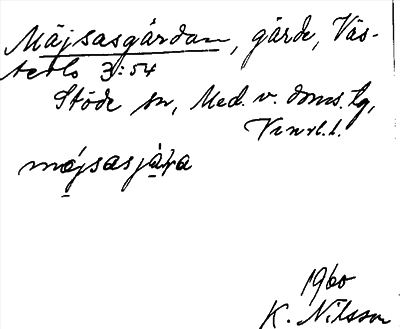 Mäjsasgärdan, gärde, Väs-
terlo 3:54
Stöde sn, Med. v. doms. lg,
mäjsasjäṛa
1960
K. Nilsson